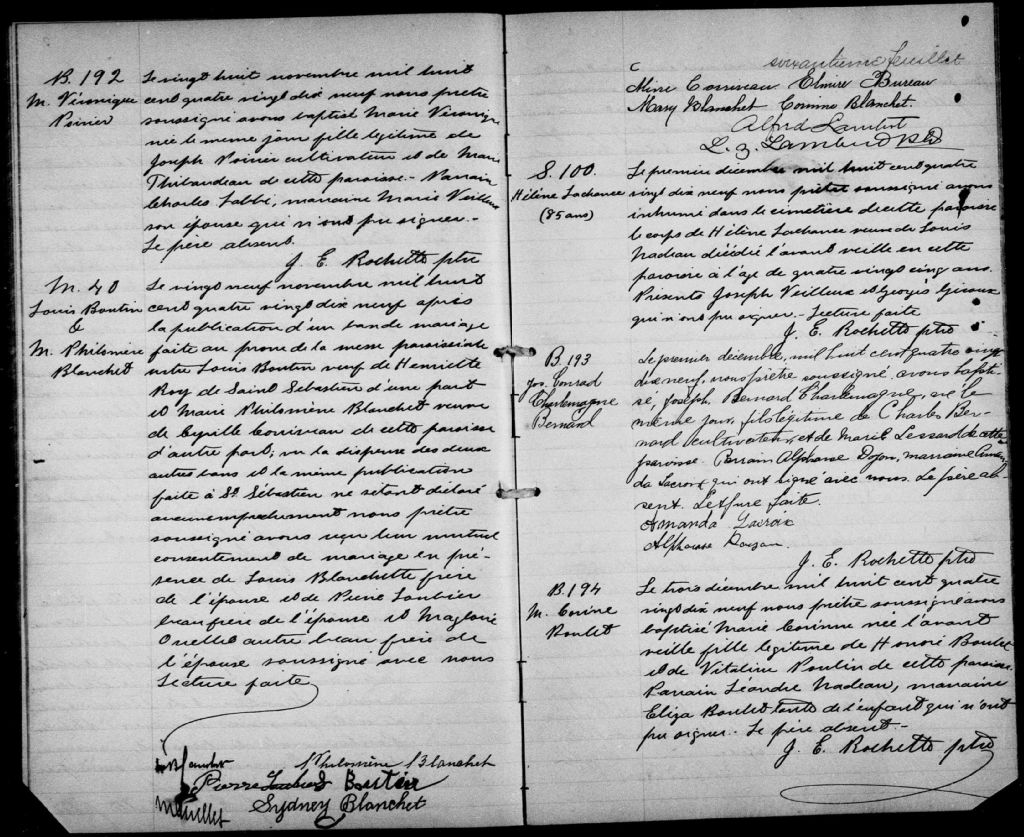 B. 192
M. Véronique
Poirier
Le vingt huit novembre mil huit
cent quatre vingt dix neuf nous prêtre
soussigné avons baptisé Marie Véroniq
née le même jour fille légitime de
Joseph Poirier cultivateur et de Marie
Thibaudeau de cette paroisse. Parrain
Charles Labbé, marraine Marie Veilleux
son épouse qui n'ont pu signer.
Le père absent.
J. E. Rochette ptre
M. 40
Louis Boutin
&
M. Philomène
Blanchet
Le vingt neuf novembre mil huit
cent quatre vingt dix neuf après
la publication d'un bande mariage
faite au prone de la messe paroissiale
entre Louis Boutin veuf de Henriette
Roy de Saint Sébastien d'une part
et Marie Philomène Blanchet veuve
de Cyrille Corriveau de cette paroisse
d'autre part; vu la dispense des deux
autres bans et la même publication
faite à St. Sébastien ne s'étant déclaré
aucun empêchement nous prêtre
soussigné avons reçu leur mutuel
consentement de mariage en pré-
sence de Louis Blanchette frère
de l'épouse et de Pierre Loubier
beau frère de l'épouse et Magloire
Ouellet autre beau frère de
l'épouse soussigné avec nous
Lecture faite
Philomène Blanchet
Pierre Loubier Boutin
M Ouellet Sydney Blanchet
soixantième feuillet
Corriveau Elmire Bureau
Mary Blanchet Corinne Blanchet
Alfred Lambert
L. Z. Lambert
S. 100.
Hélène Lachance
(85 ans)
Le premier décembre mil huit cent quatre
vingt dix neuf nous prêtre soussigné avons
inhumé dans le cimetière de cette paroisse
le corps de Hélène Lachance veuve de Louis
Nadeau décédée l'avant veille en cette
paroisse à l'âge de quatre vingt cinq ans.
Présents Joseph Veilleux et Georges Giroux
qui n'ont pu signer. Lecture faite
J. E. Rochette ptre
B. 193
Jos. Conrad
Charlemagne
Bernard
Le premier décembre, mil huit cent quatre ving
dix neuf, nous prêtre soussigné avons bapti-
sé, Joseph, Bernard Charlemagne, né le
même jour, fils légitime de Charles Ber-
nard cultivateur, et de Marie Lessard de cette
paroisse. Parrain Alphonse Doyon, marraine Aman-
da Lacroix, qui ont signé avec nous. Le père ab-
sent. Lecture faite.
Amanda Lacroix
Alphonse Doyon
J. E. Rochette ptre
B. 194
M. Corine
Boulet
Le trois décembre mil huit cent quatre
vingt dix neuf nous prêtre soussigné avons
baptisé Marie Corinne née l'avant
veille fille légitime de Honoré Boulet
et de Vitaline Poulin de cette paroisse
Parrain Léandre Nadeau, marraine
Eliza Boulet tante de l'enfant qui n'ont
pu signer. Le père absent.
J. E. Rochette ptre